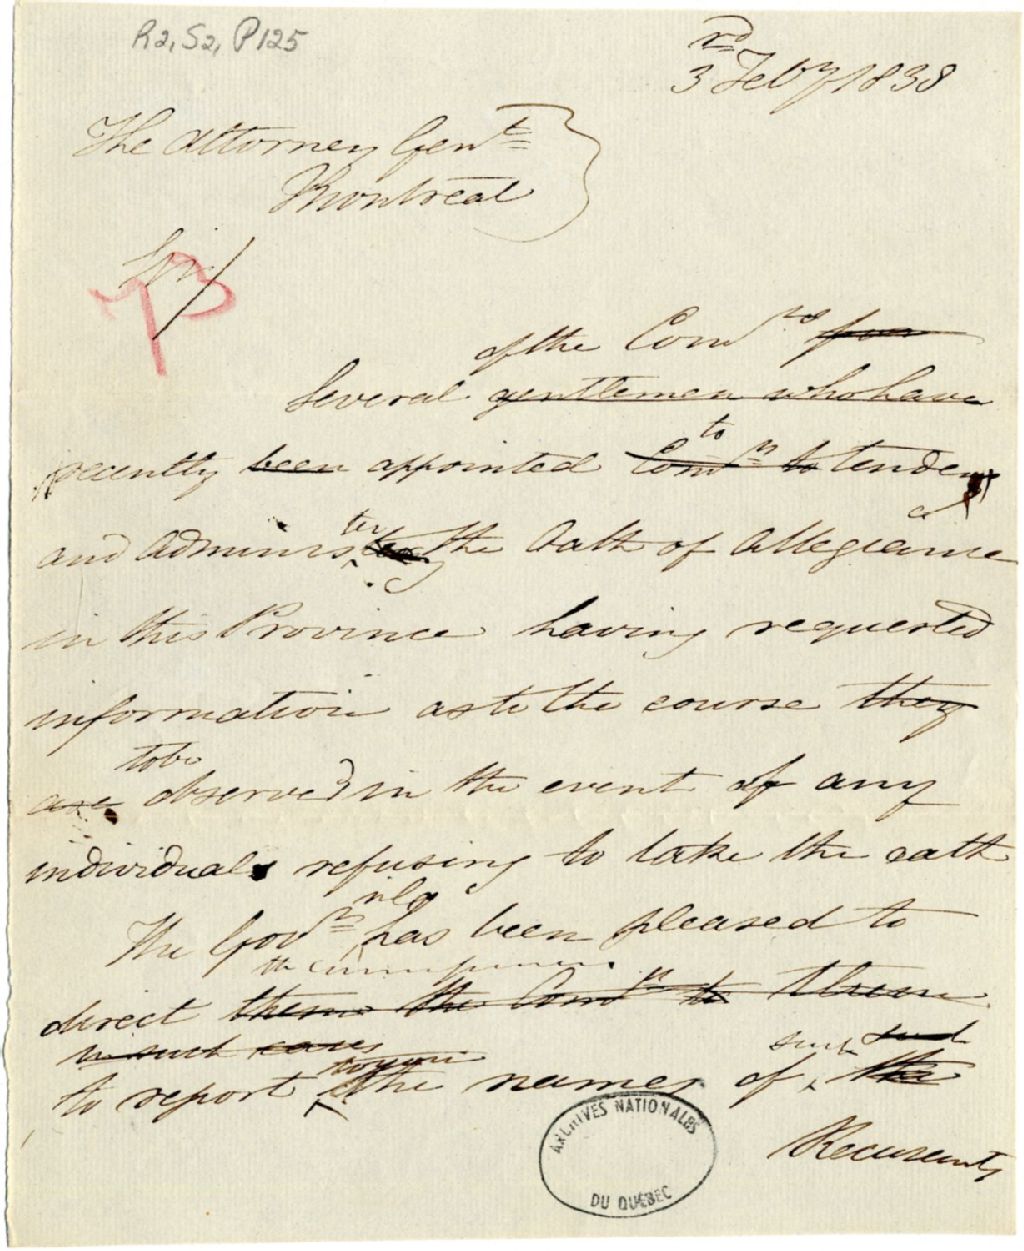 R2, S2, P125
3rd Feby 1838
The Attorney Genl
Montreal
Sir/
73
of the Comrs for
Several gentlemen who have
recently been appointed Comrs to to tender
and Administer the Oath of Allegiance
in this Province having requested
information as to the course they
to be
are observed in the event of any
individuals refusing to take the oath
The Govr has been pleased to
the
direct them the Comrs to them
in such cases
to you such such
to report the names of the
Recusants
ARCHIVES NATIONALES
DU QUÉBEC